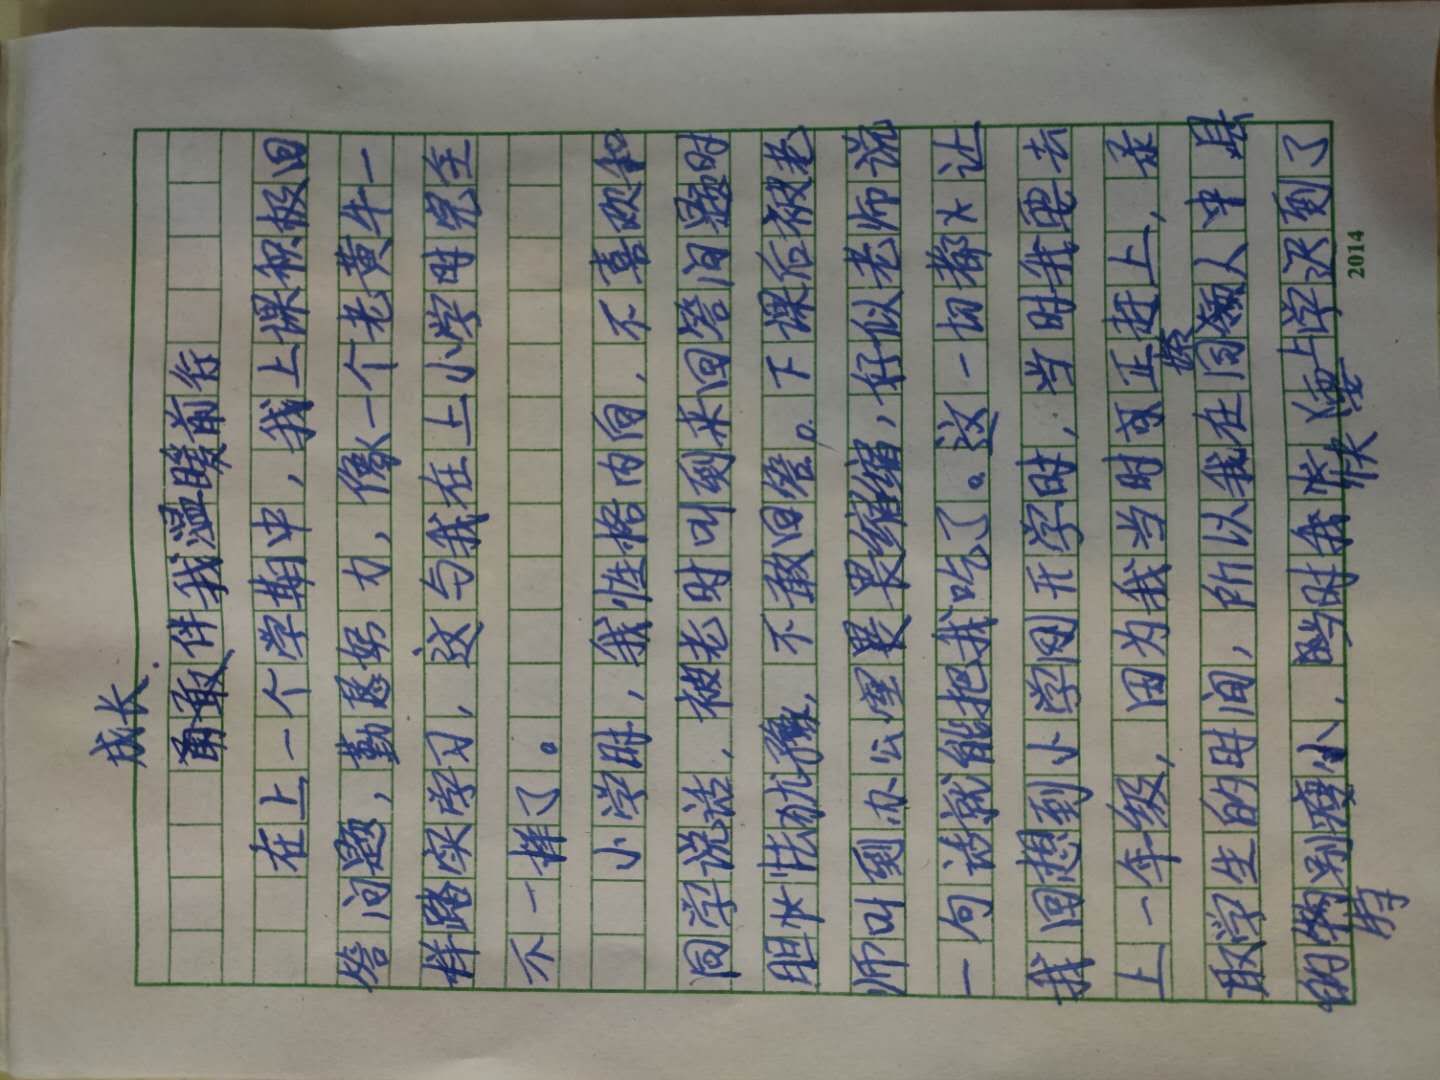 成长
勇敢伴我温暖前行
在上一个学期中，我上课积极回
答问题，勤恳努力，像一个老黄牛一
样踏实学习，这与我在上小学时完全
不一样了。
小学时，我性格内向，不喜欢和
同学说话，被老时叫到来回答问题时
胆怯犹豫，不敢回答。下课后被老
师叫到办公室畏畏缩缩，好似老师说
一句话就能把我吃了。这一切都让
我回想到小学刚开学时，当时我要去
上一年级，因为我当时年正赶上，录
取学生的时间，所以我在同龄人中是
的特别瘦小，当时我快要上学迟到了
2014